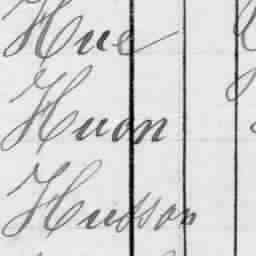 Hue
Huon
Hudson